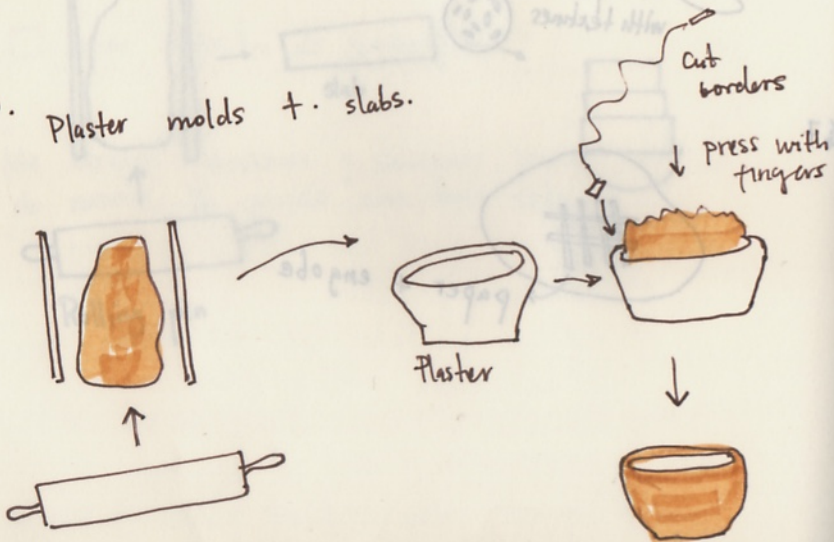 Plaster molds + slabs.
cut
borders
press with
fingers
Plaster